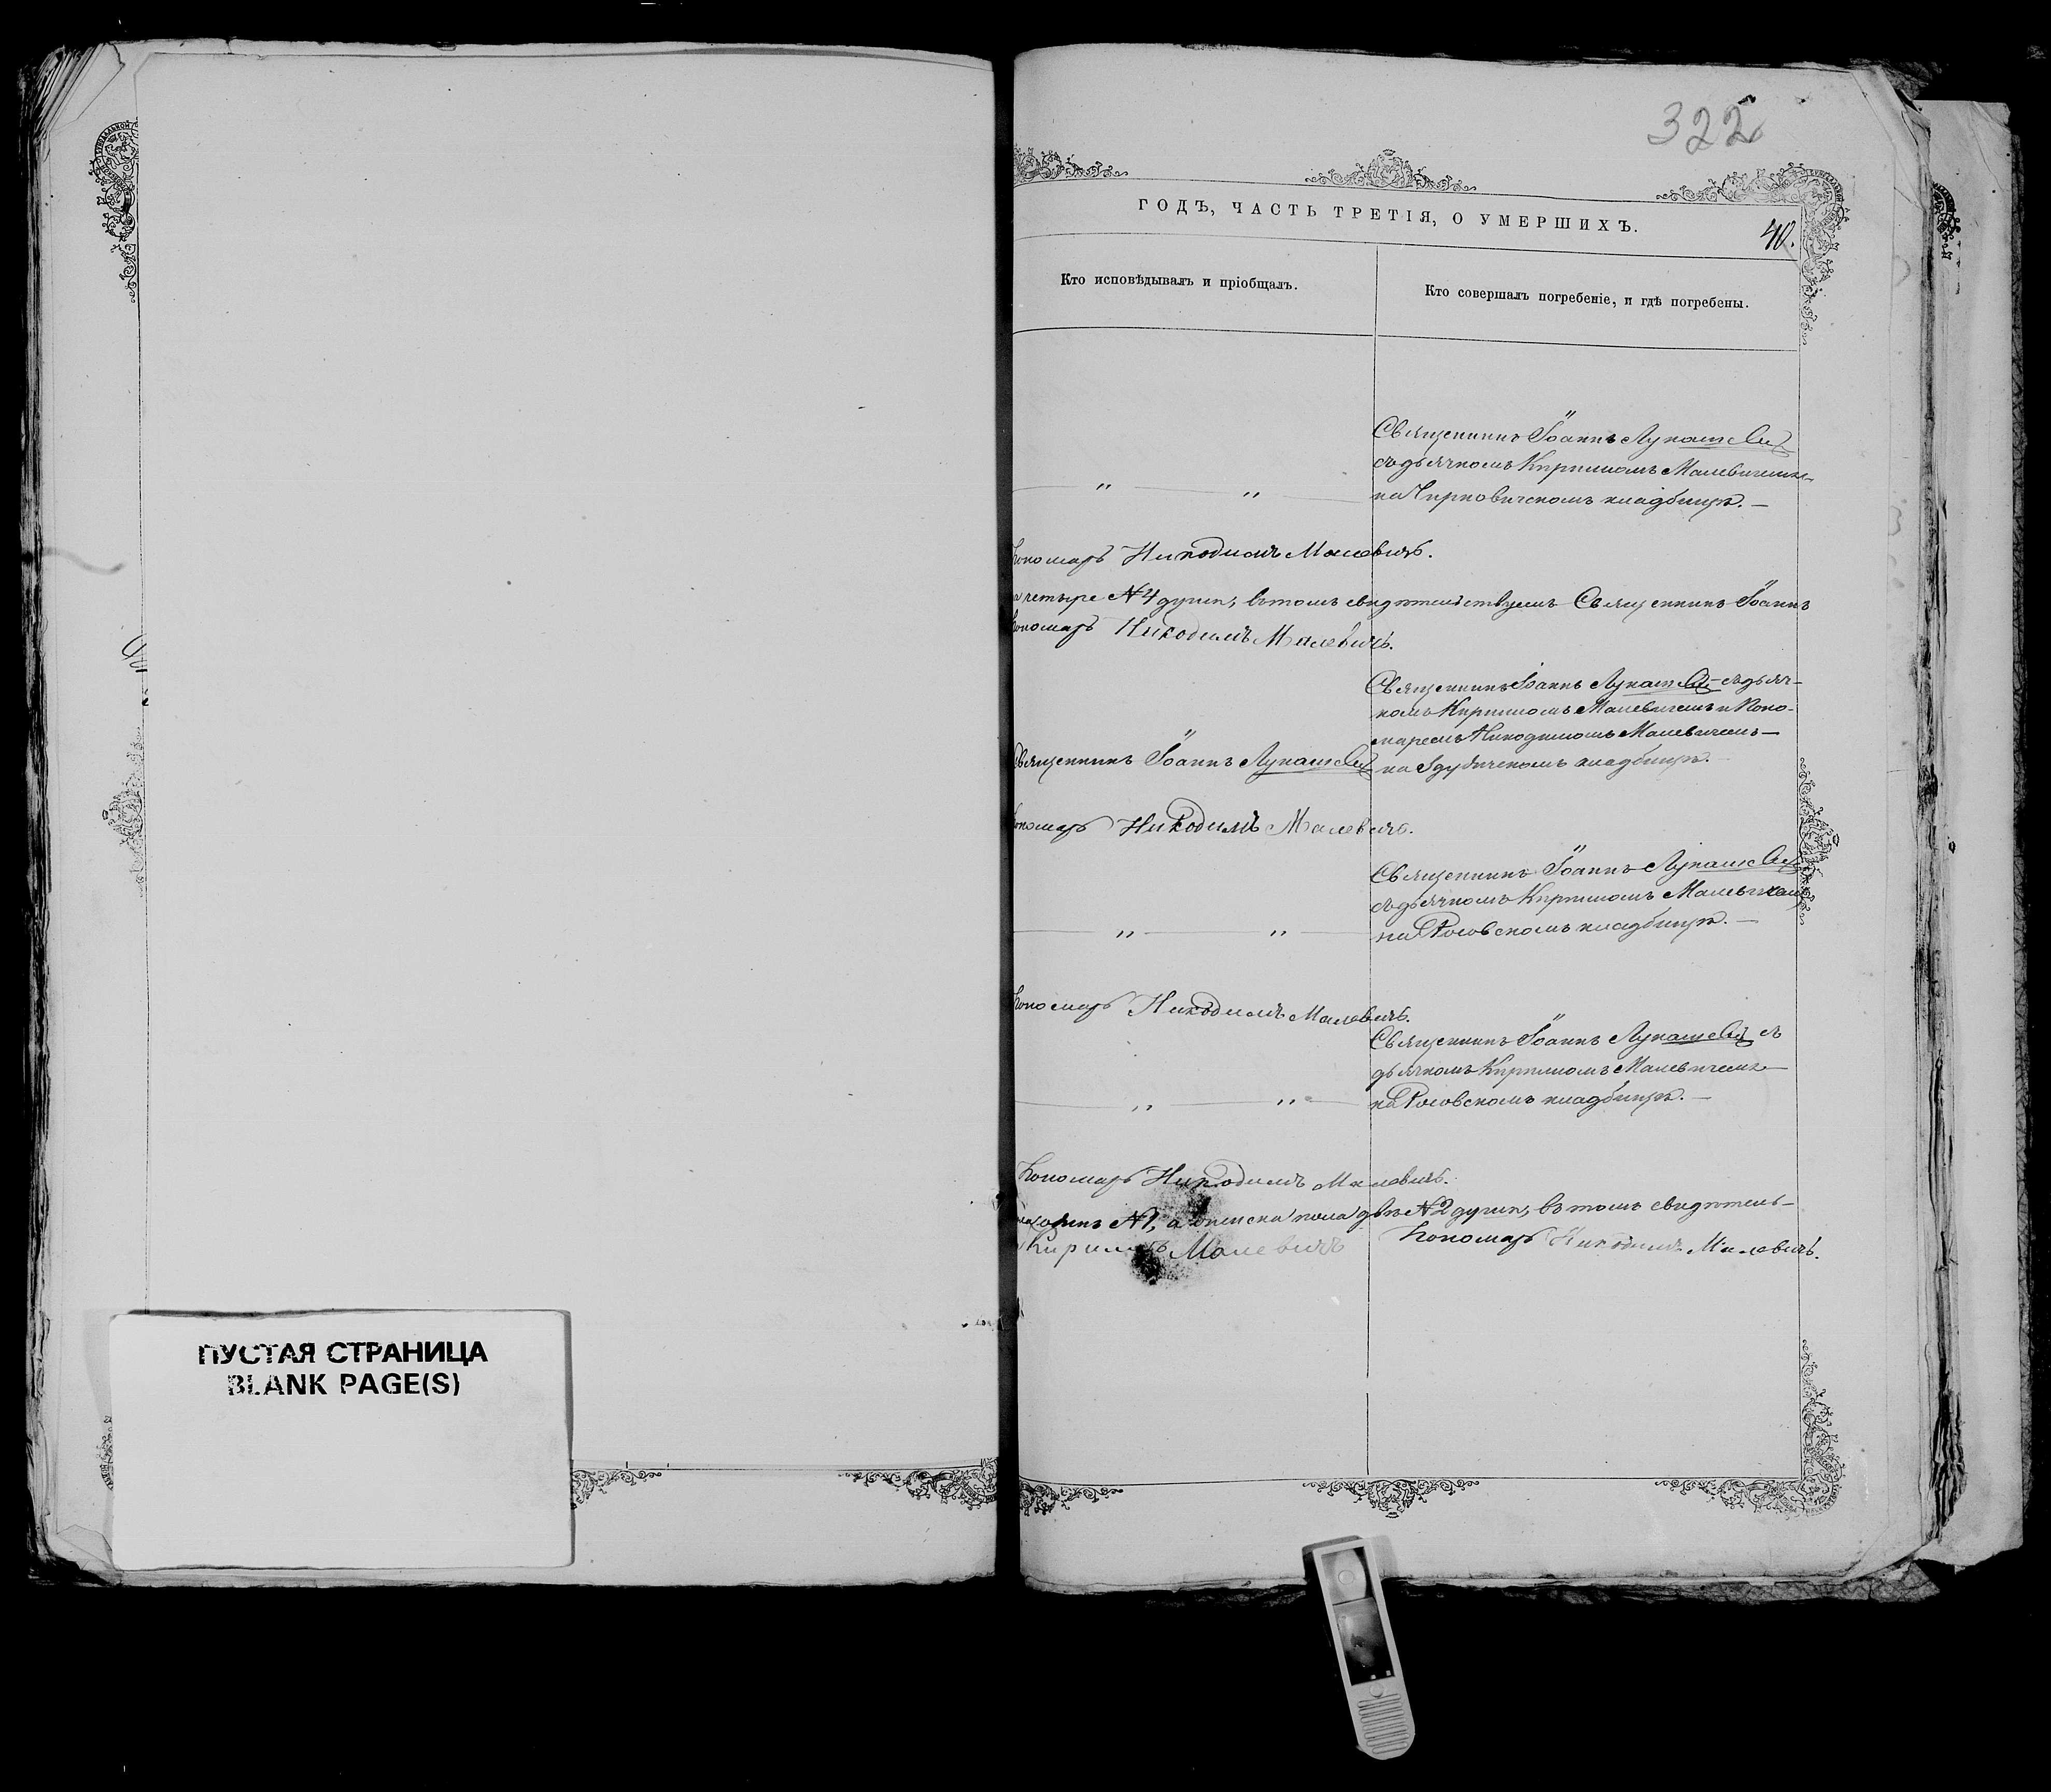 322
ГОДЪ, ЧАСТЬ ТРЕТІЯ, О УМЕРШИХЪ.
40.
Кто исповѣдывалъ и пріобщалъ.
Кто совершалъ погребеніе, и гдѣ погребены.
Священникъ Іоаннъ Лукашевич
съ дьячкомъ Кириломъ Малевичемъ
„ „
на Чирковичскомъ кладбищѣ.—
Пономарь Никодимъ Малевичъ.
четыре №4 души, въ томъ свидѣтельствуемъ Священникъ Іоаннъ
Пономарь Никодимъ Малевичъ.
Священникъ Іоаннъ Лукашевич съ дьяч-
комъ Кириломъ Малевичемъ и Поно-
маремъ Никодимомъ Малевичемъ—
Священникъ Іоаннъ Лукашевич
на Здудичскомъ кладбищѣ.—
Пономарь Никодимъ Малевичъ.
Священникъ Іоаннъ Лукашевич
съ дьячкомъ Кириломъ Малевичемъ
„ „
на Росовскомъ кладбищѣ.—
Пономарь Никодимъ Малевичъ.
Священникъ Іоаннъ Лукашевич съ
дьячкомъ Кириломъ Малевичемъ—
„ „
на Росовскомъ кладбищѣ.—
Пономарь Никодимъ Малевичъ.
одинъ №1, а женска пола двѣ №2 души, въ томъ свидѣтель-
Кирилъ Малевичъ
Пономарь Никодимъ Малевичъ.
ПУСТАЯ СТРАНИЦА
BLANK PAGE(S)